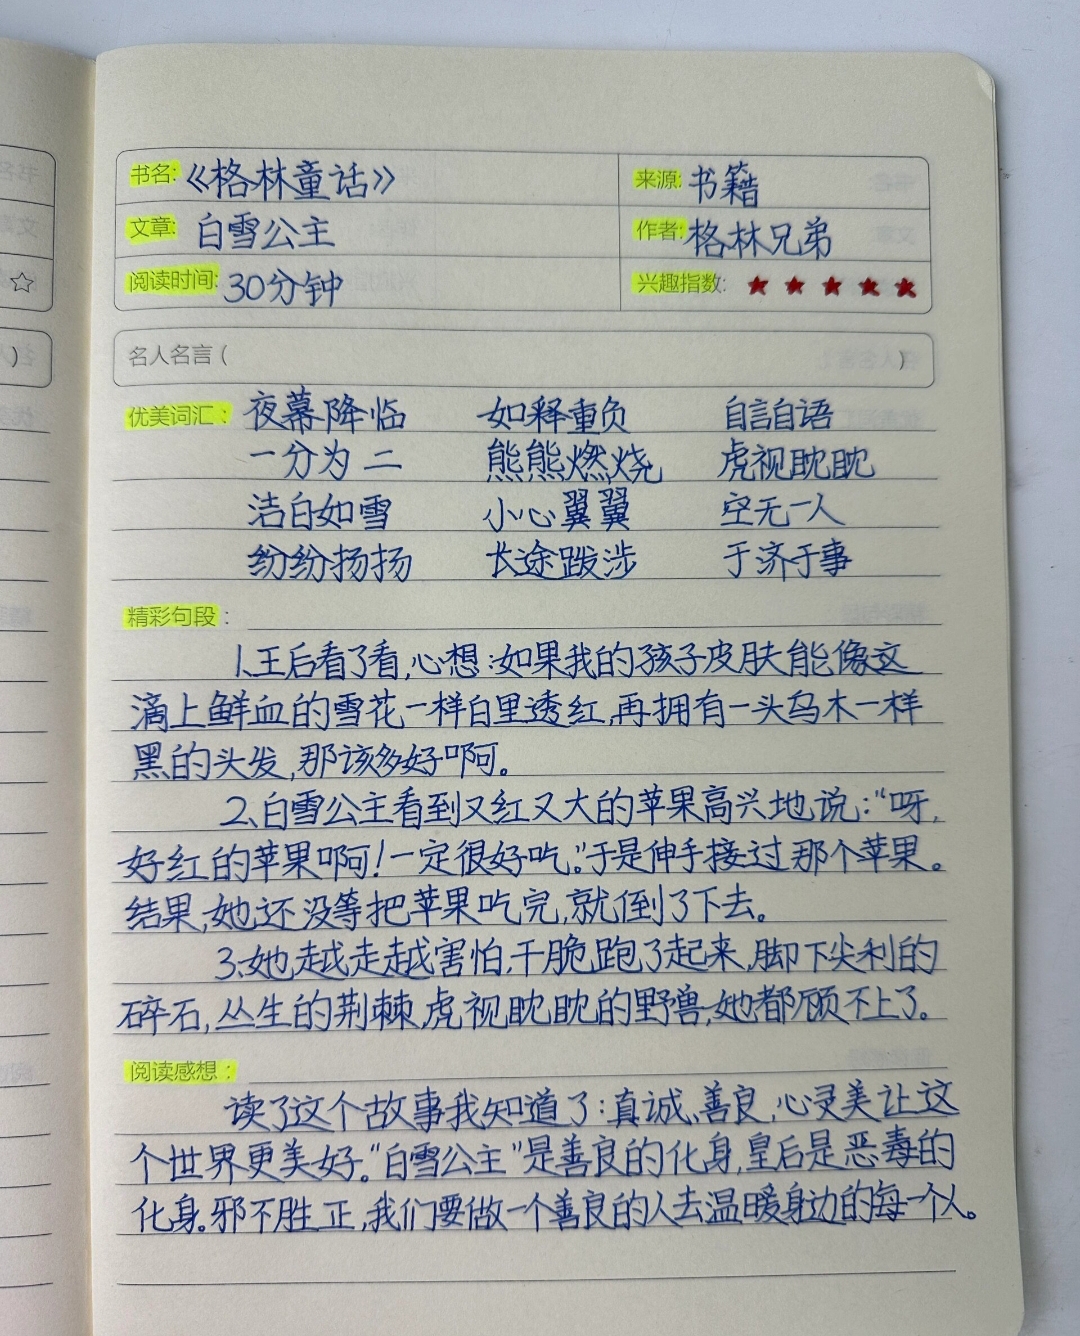 书名:《格林童话》 来源:书籍
文章:白雪公主 作者:格林兄弟
阅读时间:30分钟 兴趣指数:★★★★★
☆
名人名言( )
)
优美词汇: 夜幕降临 如释重负 自言自语
一分为二 熊熊燃烧 虎视眈眈
洁白如雪 小心翼翼 空无一人
纷纷扬扬 长途跋涉 于济于事
精彩句段:
1、王后看了看,心想:如果我的孩子皮肤能像这
滴上鲜血的雪花一样白里透红,再拥有一头乌木一样
黑的头发,那该多好啊。
2、白雪公主看到又红又大的苹果高兴地说:“呀,
好红的苹果啊!一定很好吃。”于是伸手接过那个苹果。
结果,她还没等把苹果吃完,就倒了下去。
3、她越走越害怕,干脆跑了起来,脚下尖利的
碎石,丛生的荆棘,虎视眈眈的野兽,她都顾不上了。
阅读感想:
读了这个故事我知道了:真诚、善良,心灵美让这
个世界更美好。“白雪公主”是善良的化身,皇后是恶毒的
化身。邪不胜正,我们要做一个善良的人去温暖身边的每一个人。